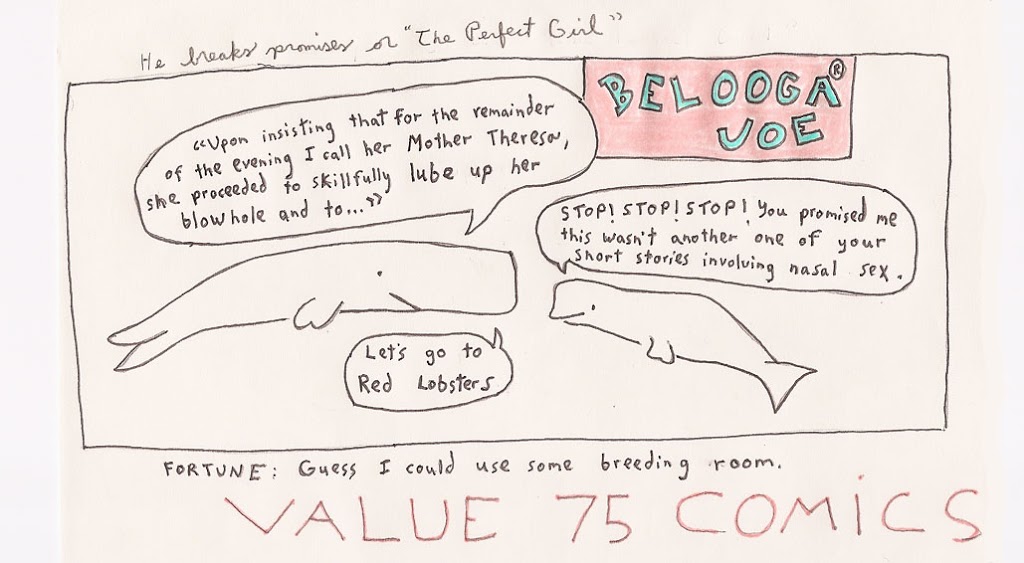 He breaks promises or "The Perfect Girl"
BELOOGA®
JOE
"Upon insisting that for the remainder
of the evening I call her Mother Theresa,
she proceeded to skillfully lube up her
blowhole and to..."
STOP! STOP! STOP! You promised me
this wasn't another one of your
short stories involving nasal sex.
Let's go to
Red Lobsters
FORTUNE: Guess I could use some breeding room.
VALUE 75 COMiCS